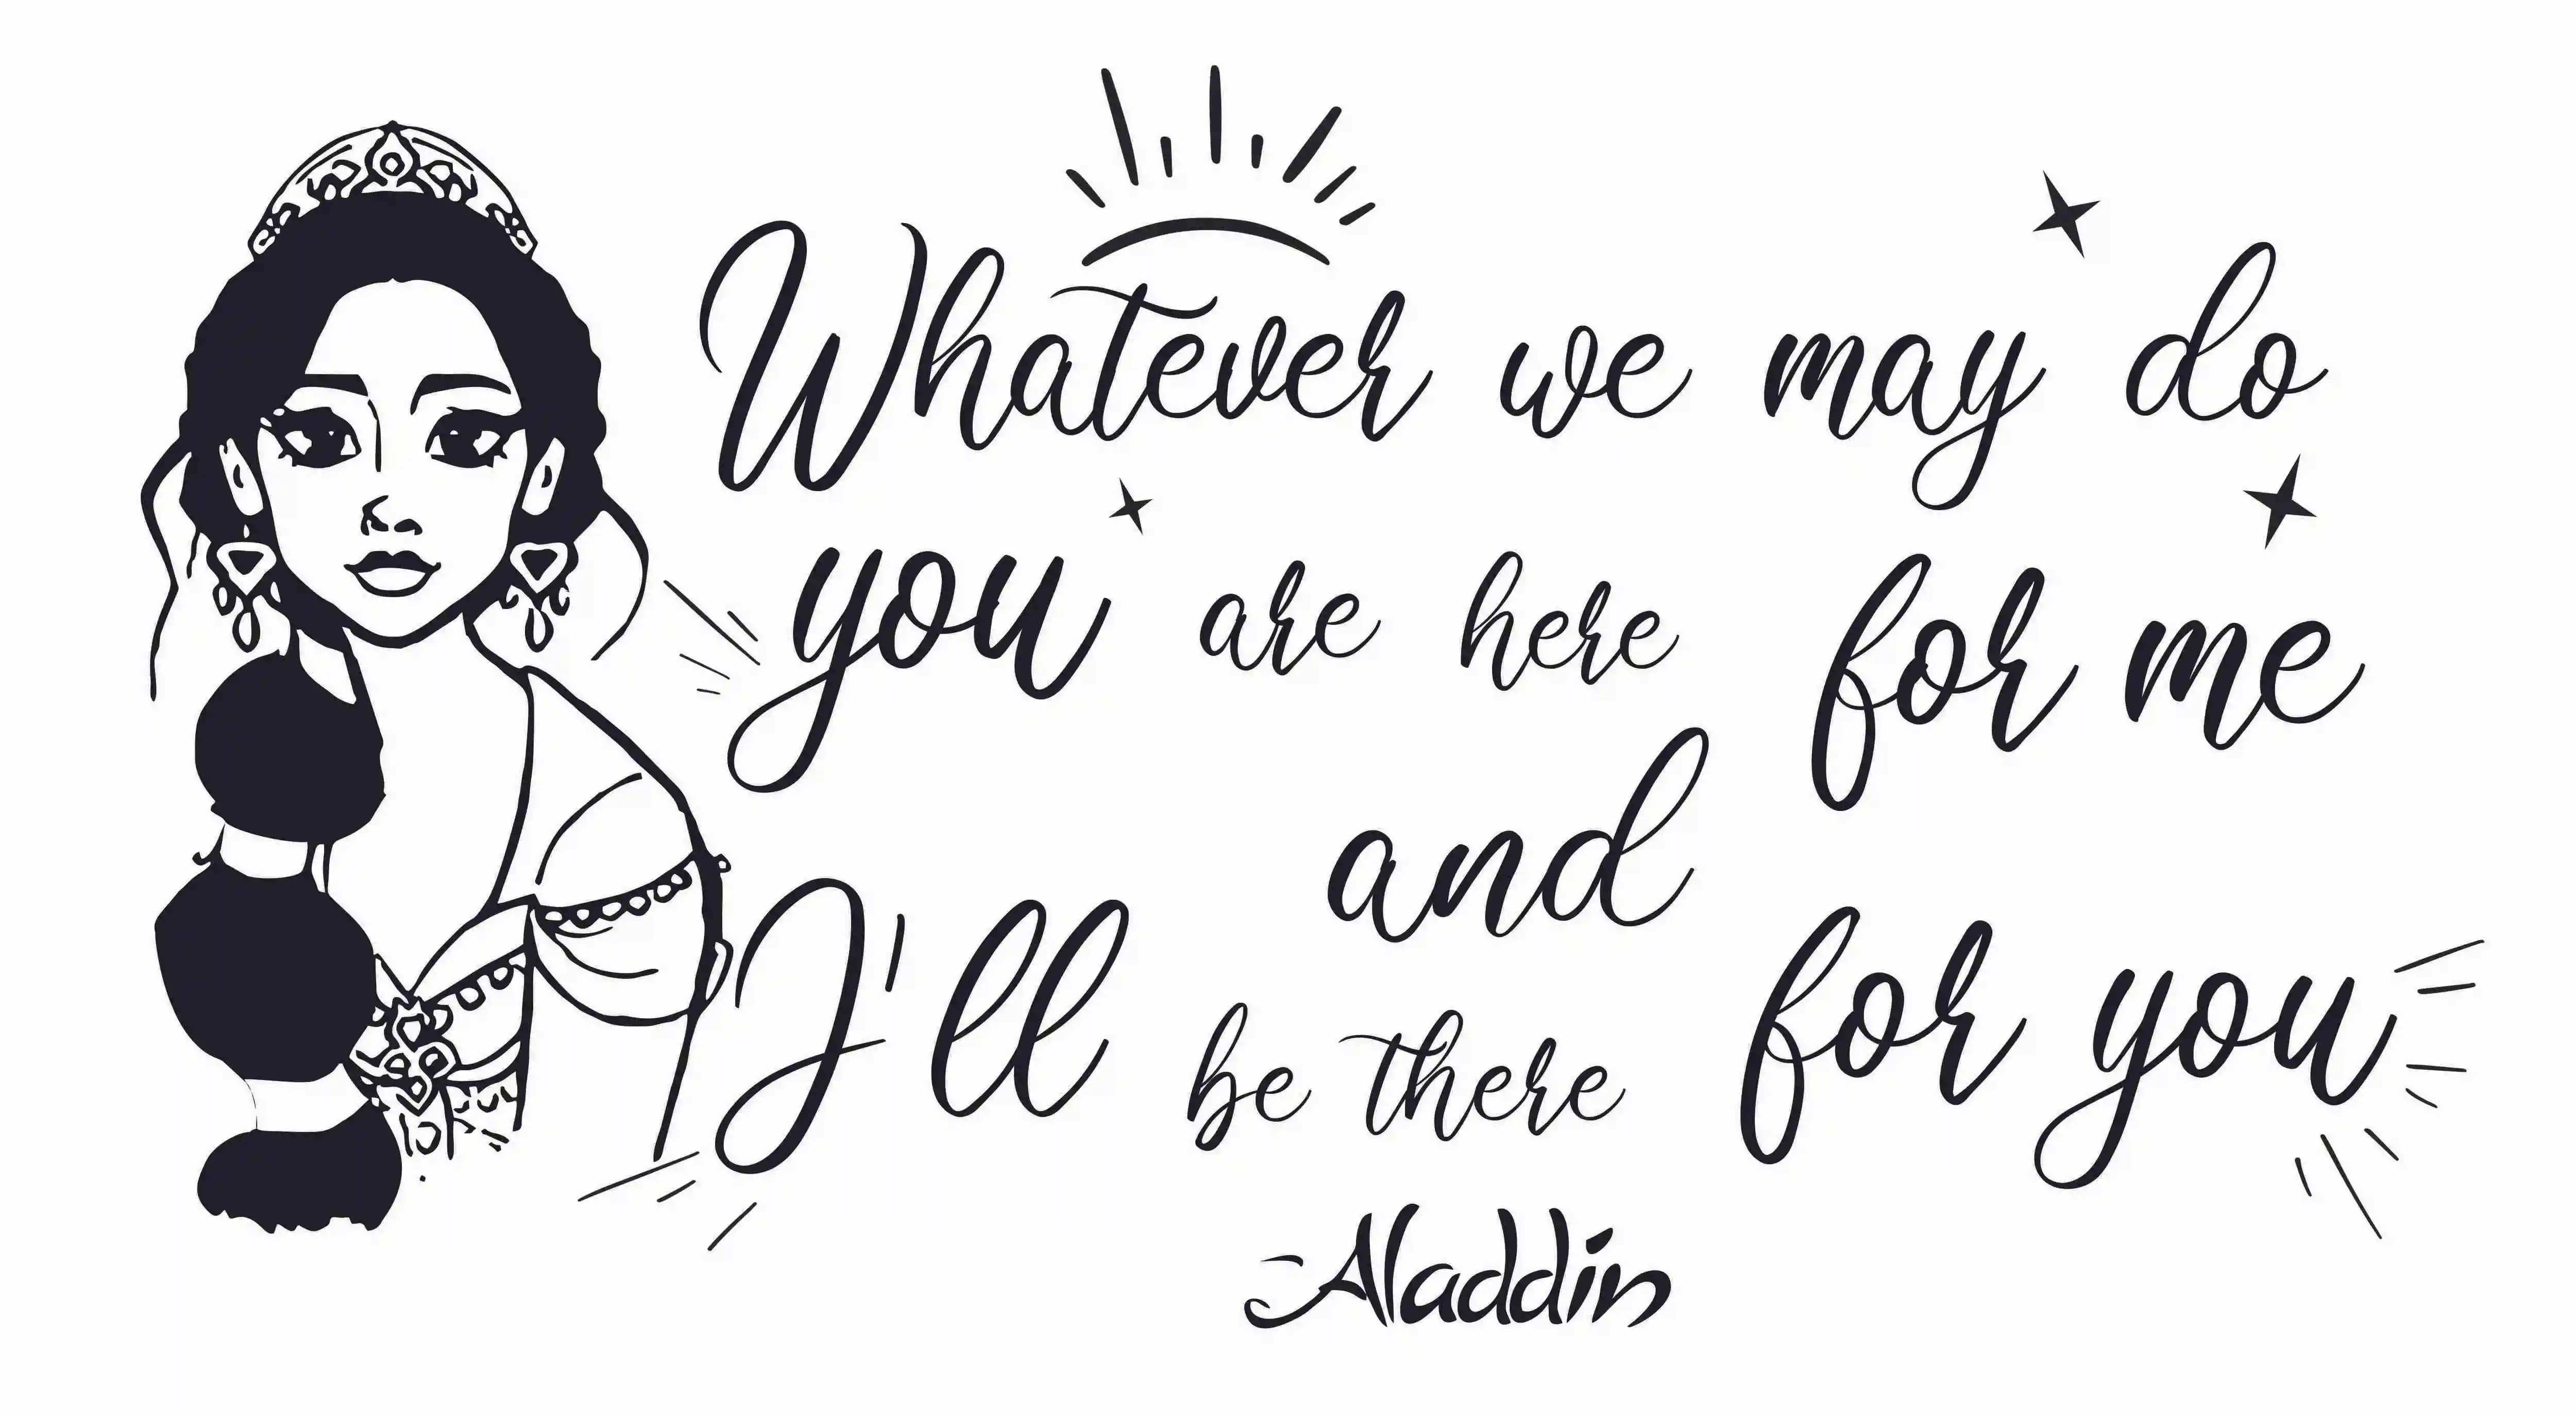 Whatever we may do
you are here for me
and
I'll be there for you
-Aladdin